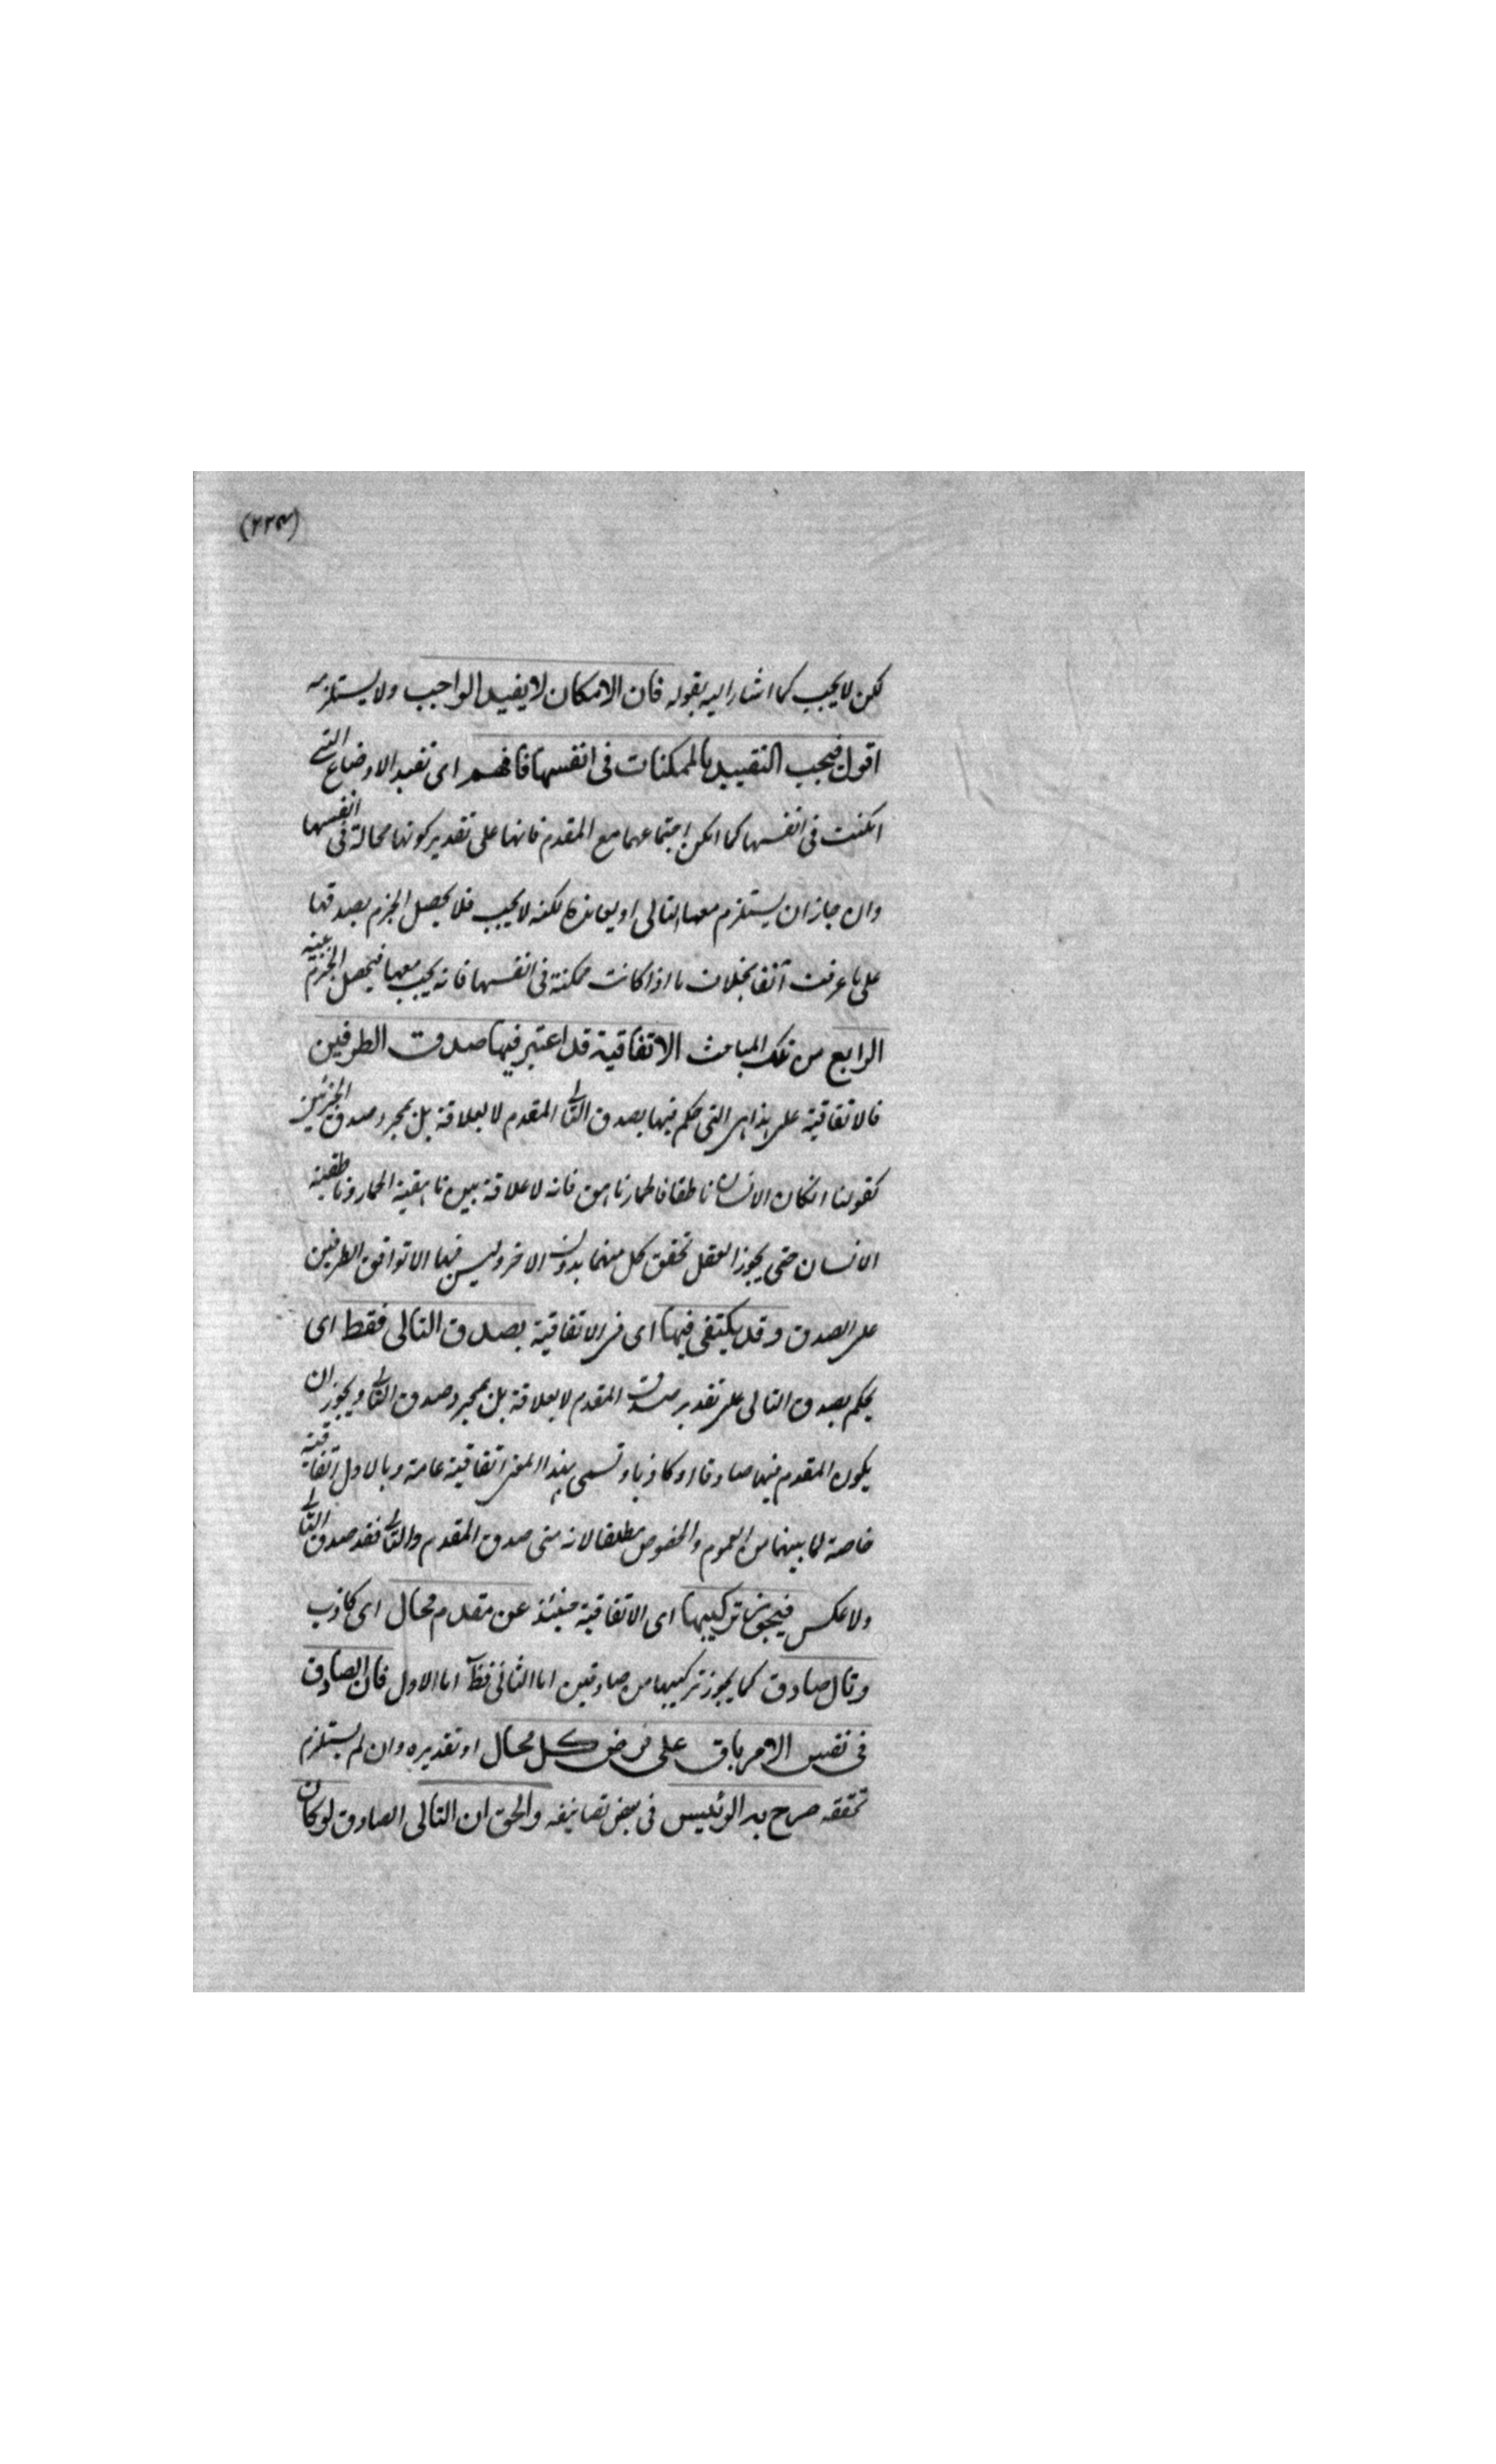 (٢٢٣)
لكن لا يجب كما اشار اليه بقوله فان الامكان لا يفيد الواجب ولا يستلزمه
اقول فيجب التقييد بالممكنات فى انفسها فافهم اى تقييد الاوضاع التى
امكنت فى انفسها كما امكن اجتماعهما مع المقدم فانها على تقدير كونها محالة فى انفسها
وان جاز ان يستلزم معها التالى او يعانده لكنه لا يجب فلا يحصل الجزم بصدقها
على ما عرفت آنفا بخلاف ما اذا كانت ممكنة فى انفسها فانه يجب معها فيحصل الجزم
الرابع من تلك المباحث الاتفاقية قد اعتبر فيها صدق الطرفين
فالاتفاقية على هذا هى التى حكم فيها بصدق التالى المقدم لا بعلاقة بل بمجرد صدق الجزئين
كقولنا ان كان الانسان ناطقا فالحمار ناهق فانه لا علاقة بين ناهقية الحمار وناطقية
الانسان حتى يجوز العقل تحقق كل منهما بدون الاخر وليس فيها الا توافق الطرفين
على الصدق وقد يكتفى فيها اى فى الاتفاقية بصدق التالى فقط اى
يحكم بصدق التالى على تقدير صدق المقدم لا بعلاقة بل بمجرد صدق التالى ويجوز ان
يكون المقدم فيها صادقا او كاذبا وتسمى بهذا المعنى اتفاقية عامة وبالاول اتفاقية
خاصة لما بينهما من العموم والخصوص مطلقا لانه متى صدق المقدم والتالى فقد صدق التالى
ولا عكس فيجوز تركيبها اى الاتفاقية حينئذ عن مقدم محال اى كاذب
وتال صادق كما يجوز تركيبها من صادقين اما الثانى فظ اما الاول فان الصادق
فى نفس الامر باق على فرض كل محال او تقديره وان لم يستلزم
تحققه صرح به الرئيس فى بعض تصانيفه والحق ان التالى الصادق لو كان